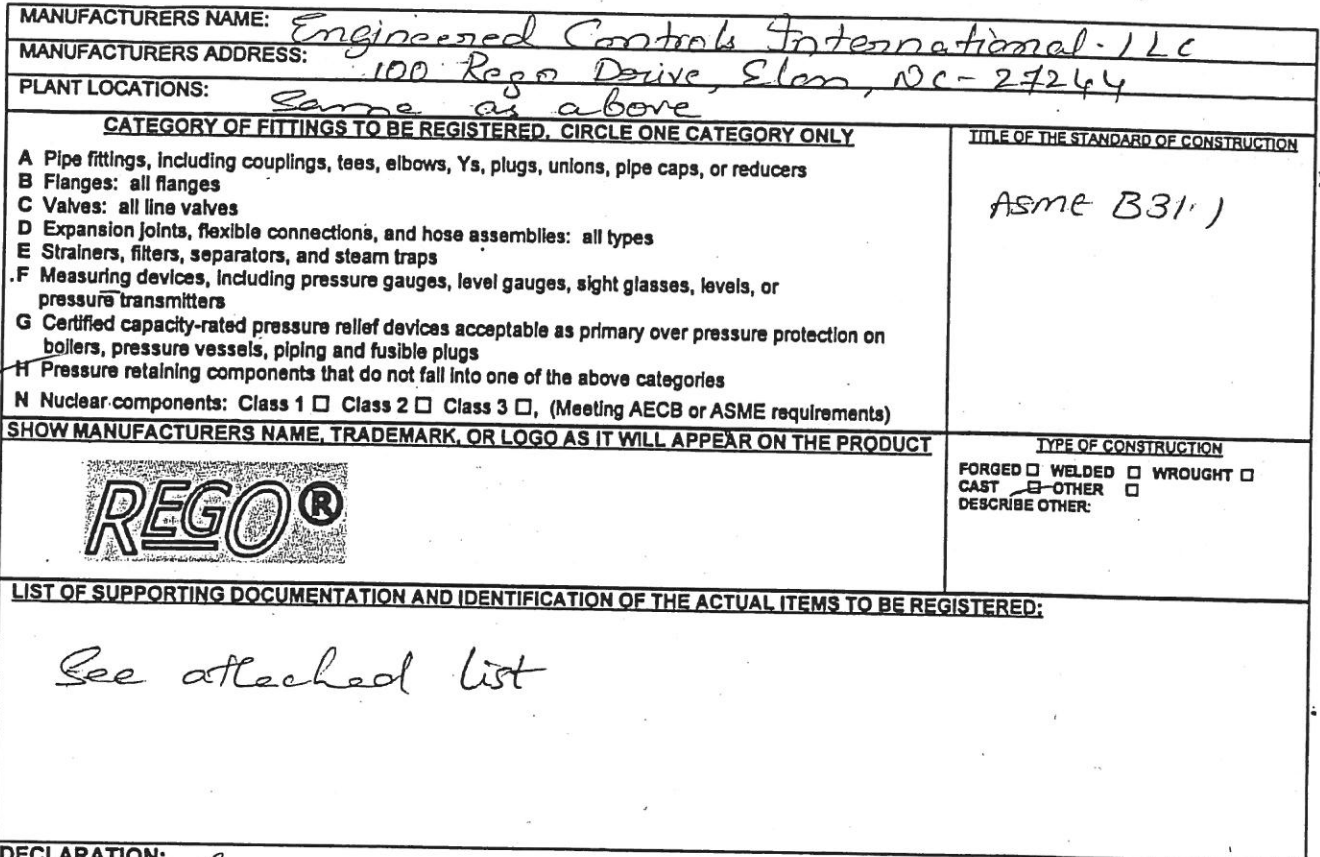 MANUFACTURERS NAME: Engineered Controls International. LLC
MANUFACTURERS ADDRESS: 100 Rego Drive, Elon, NC-27244
PLANT LOCATIONS: Same as above
CATEGORY OF FITTINGS TO BE REGISTERED. CIRCLE ONE CATEGORY ONLY
A Pipe fittings, including couplings, tees, elbows, Ys, plugs, unions, pipe caps, or reducers
B Flanges: all flanges
C Valves: all line valves
D Expansion joints, flexible connections, and hose assemblies: all types
E Strainers, filters, separators, and steam traps
F Measuring devices, including pressure gauges, level gauges, sight glasses, levels, or
pressure transmitters
G Certified capacity-rated pressure relief devices acceptable as primary over pressure protection on
boilers, pressure vessels, piping and fusible plugs
H Pressure retaining components that do not fall into one of the above categories
N Nuclear components: Class 1 ☐ Class 2 ☐ Class 3 ☐, (Meeting AECB or ASME requirements)
TITLE OF THE STANDARD OF CONSTRUCTION
ASME B31.1
SHOW MANUFACTURERS NAME, TRADEMARK, OR LOGO AS IT WILL APPEAR ON THE PRODUCT
REGO®
TYPE OF CONSTRUCTION
FORGED ☐ WELDED ☐ WROUGHT ☐
CAST ☐ OTHER ☐
DESCRIBE OTHER:
LIST OF SUPPORTING DOCUMENTATION AND IDENTIFICATION OF THE ACTUAL ITEMS TO BE REGISTERED:
See attached list
DECLARATION: